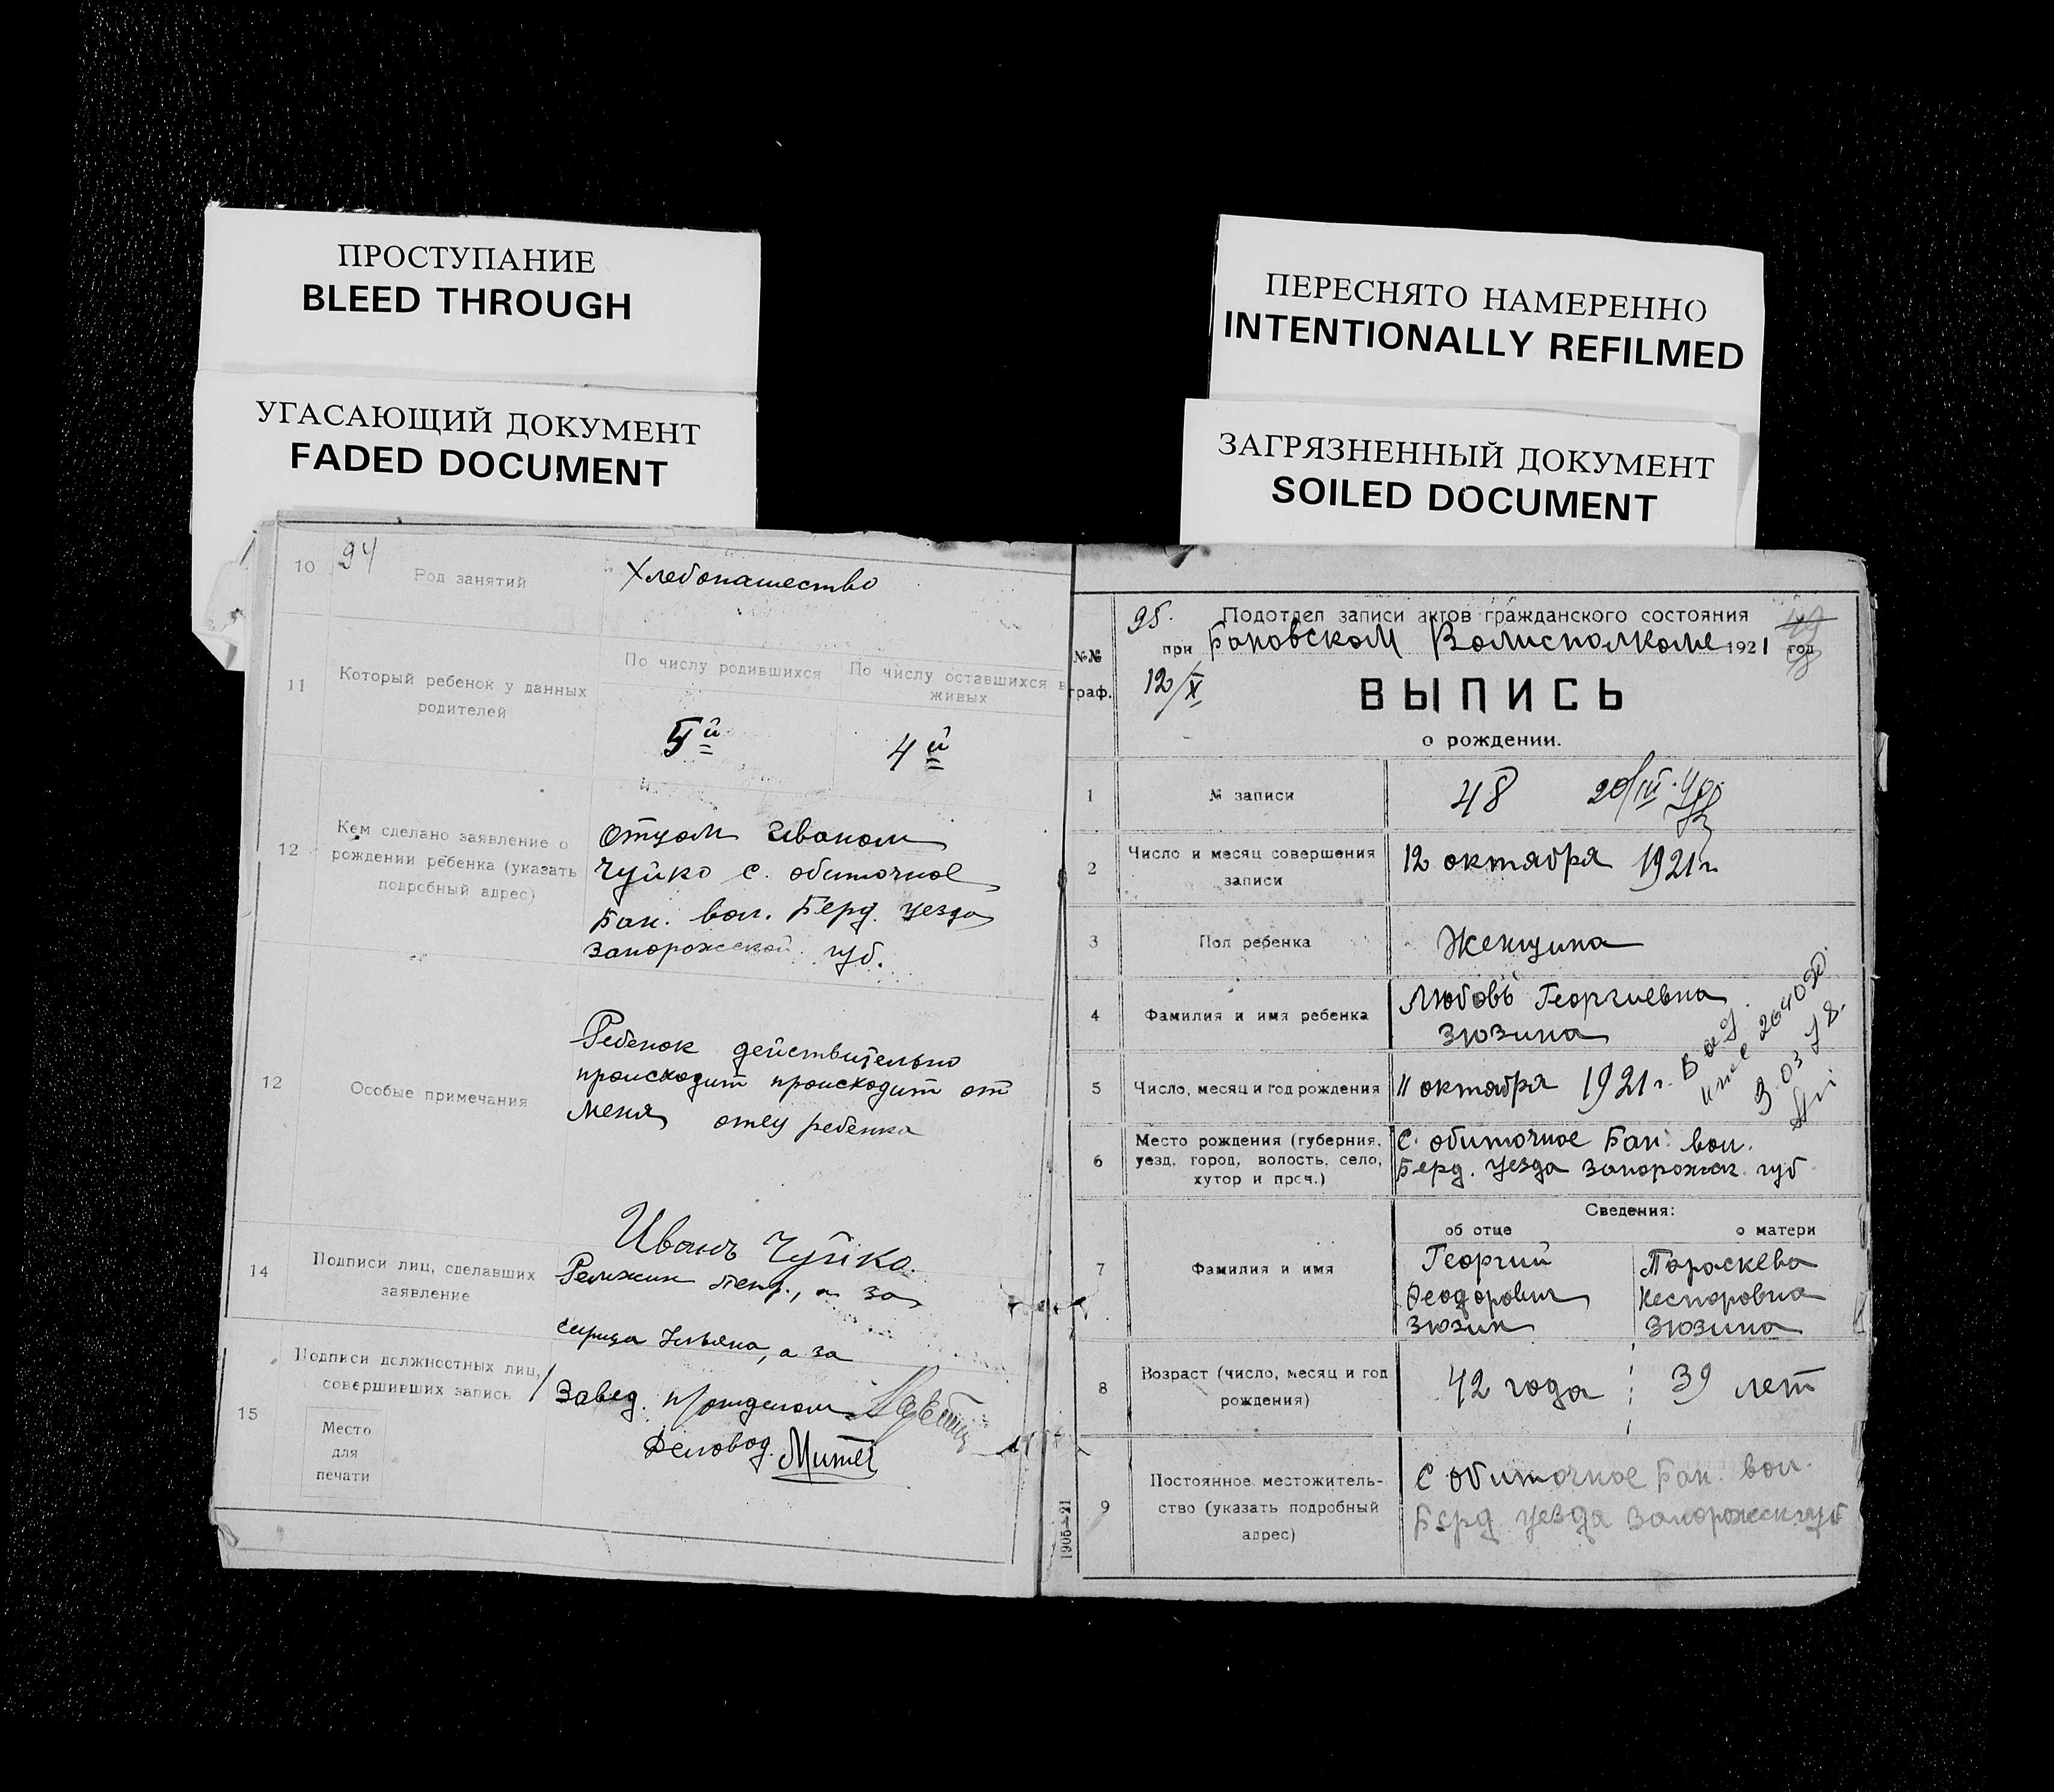 ПРОСТУПАНИЕ
BLEED THROUGH
УГАСАЮЩИЙ ДОКУМЕНТ
FADED DOCUMENT
ПЕРЕСНЯТО НАМЕРЕННО
INTENTIONALLY REFILMED
ЗАГРЯЗНЕННЫЙ ДОКУМЕНТ
SOILED DOCUMENT
94
10 Род занятий Хлебопашество
11 Который ребенок у данных
родителей
По числу родившихся По числу оставшихся в
живых
5й 4й
12 Кем сделано заявление о
рождении ребенка (указать
подробный адрес)
Отцом Иваном
Чуйко с. обиточное
Бан. вол. Берд. уезда
Запорожской губ.
12 Особые примечания
Ребенок действительно
происходит происходит от
меня отец ребенка
14 Подписи лиц, сделавших
заявление
Иванъ Чуйко.
а за
а за
15 Подписи должностных лиц,
совершивших запись
Место
для
печати
Завед. п/отделом
Деловод.
95.
Подотдел записи актов гражданского состояния
при Бановском Волисполкоме 1921 год
№№
граф.
12/X
ВЫПИСЬ
о рождении.
1 № записи 48 20/III
2 Число и месяц совершения
записи
12 октября 1921 г.
3 Пол ребенка Женщина
4 Фамилия и имя ребенка
Любовь Георгиевна
Зюзина
5 Число, месяц и год рождения 11 октября 1921 г.
264020
3.03.78.
6 Место рождения (губерния,
уезд, город, волость, село,
хутор и проч.)
С. обиточное Бан. вол.
Берд. уезда Запорожск. губ
Сведения:
об отце о матери
7 Фамилия и имя
Георгий
Феодорович
Зюзин
Параскева
Несторовна
Зюзина
8 Возраст (число, месяц и год
рождения)
42 года 39 лет
9 Постоянное местожитель-
ство (указать подробный
адрес)
С обиточное Бан. вол.
Берд уезда Запорожск губ
1905—21